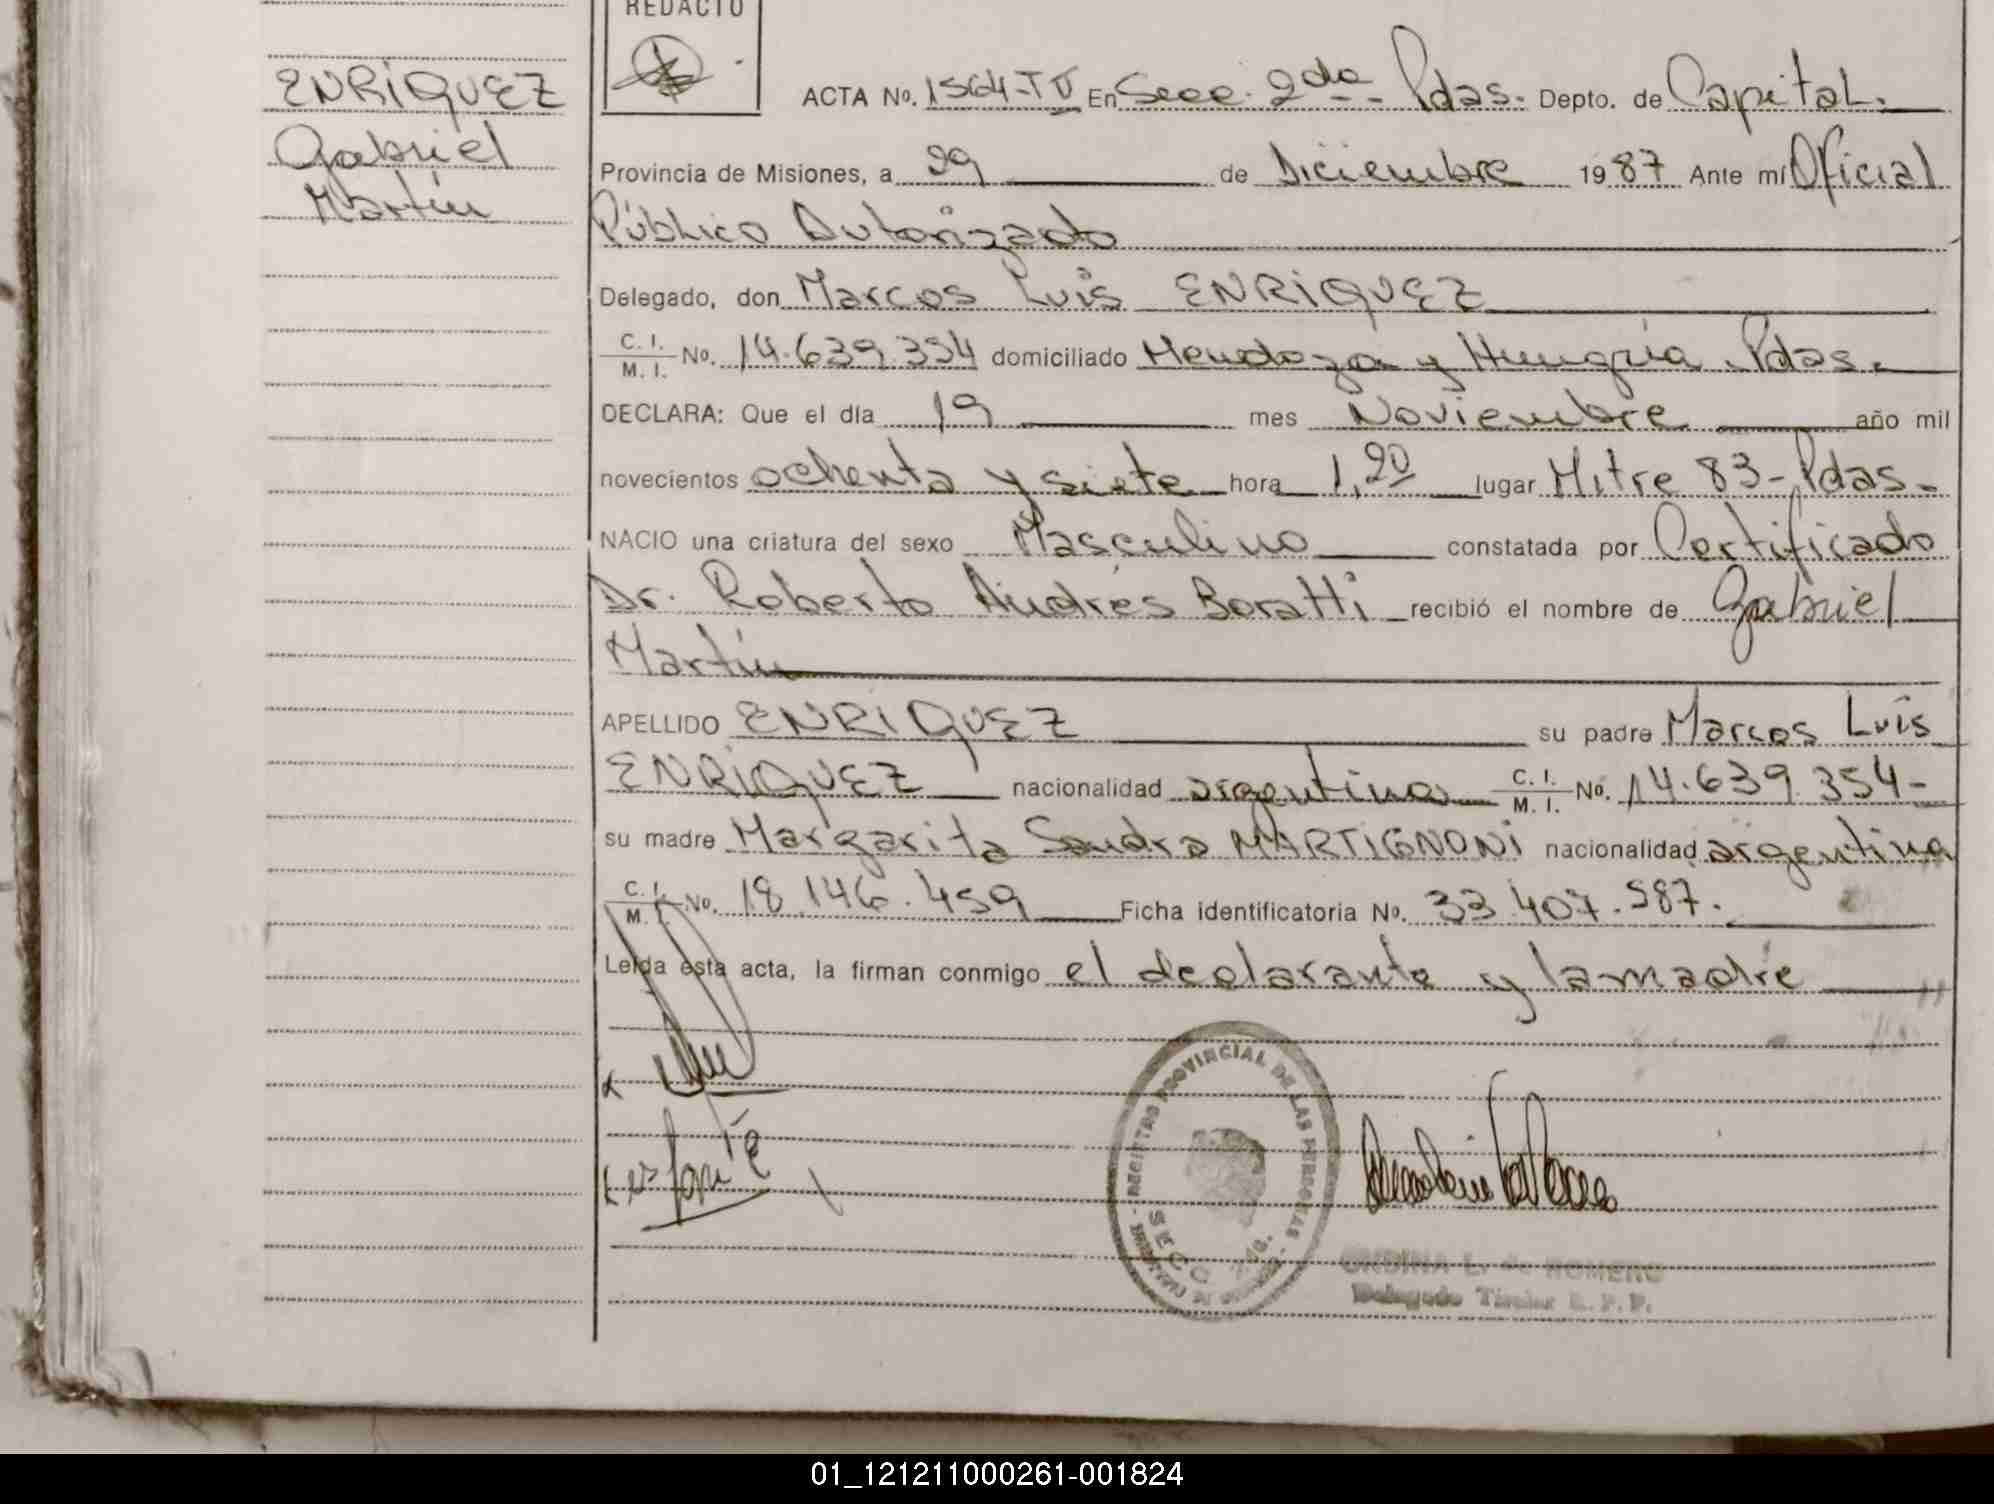 REDACTO
ENRIQUEZ
Gabriel
Martín
ACTA No. 1564-TV En Secc. 2da - Pdas. Depto. de Capital.
Provincia de Misiones, a 29 de Diciembre 1987 Ante mí Oficial
Público Autorizado
Delegado, don Marcos Luis ENRIQUEZ
C. I.
M. I. No. 14.639.354 domiciliado Mendoza y Hungría - Pdas.
DECLARA: Que el día 19 mes Noviembre año mil
novecientos ochenta y siete hora 1,20 lugar Mitre 83 - Pdas -
NACIO una criatura del sexo Masculino constatada por Certificado
Dr. Roberto Andrés Boratti recibió el nombre de Gabriel
Martín
APELLIDO ENRIQUEZ su padre Marcos Luis
ENRIQUEZ nacionalidad argentina C. I.
M. I. No. 14.639.354-
su madre Margarita Sandra MARTIGNONI nacionalidad argentina
C. I.
M. I. No. 18.146.459 Ficha identificatoria No. 33.407.587.
Leída esta acta, la firman conmigo el declarante y la madre
REGISTRO PROVINCIAL DE LAS PERSONAS
SECC
ONDINA L. de ROMERO
Delegado Titular R. P. P.
01_121211000261-001824